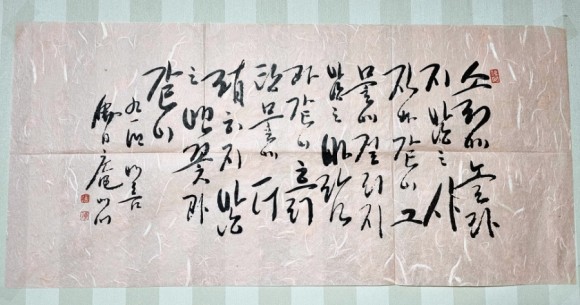 소리에 놀라
지 않는 사
자와 같이 그
물에 걸리지
않는 바람
과 같이 흙
탕물에 더
럽히지 않
는 연꽃과
같이
佛日庵